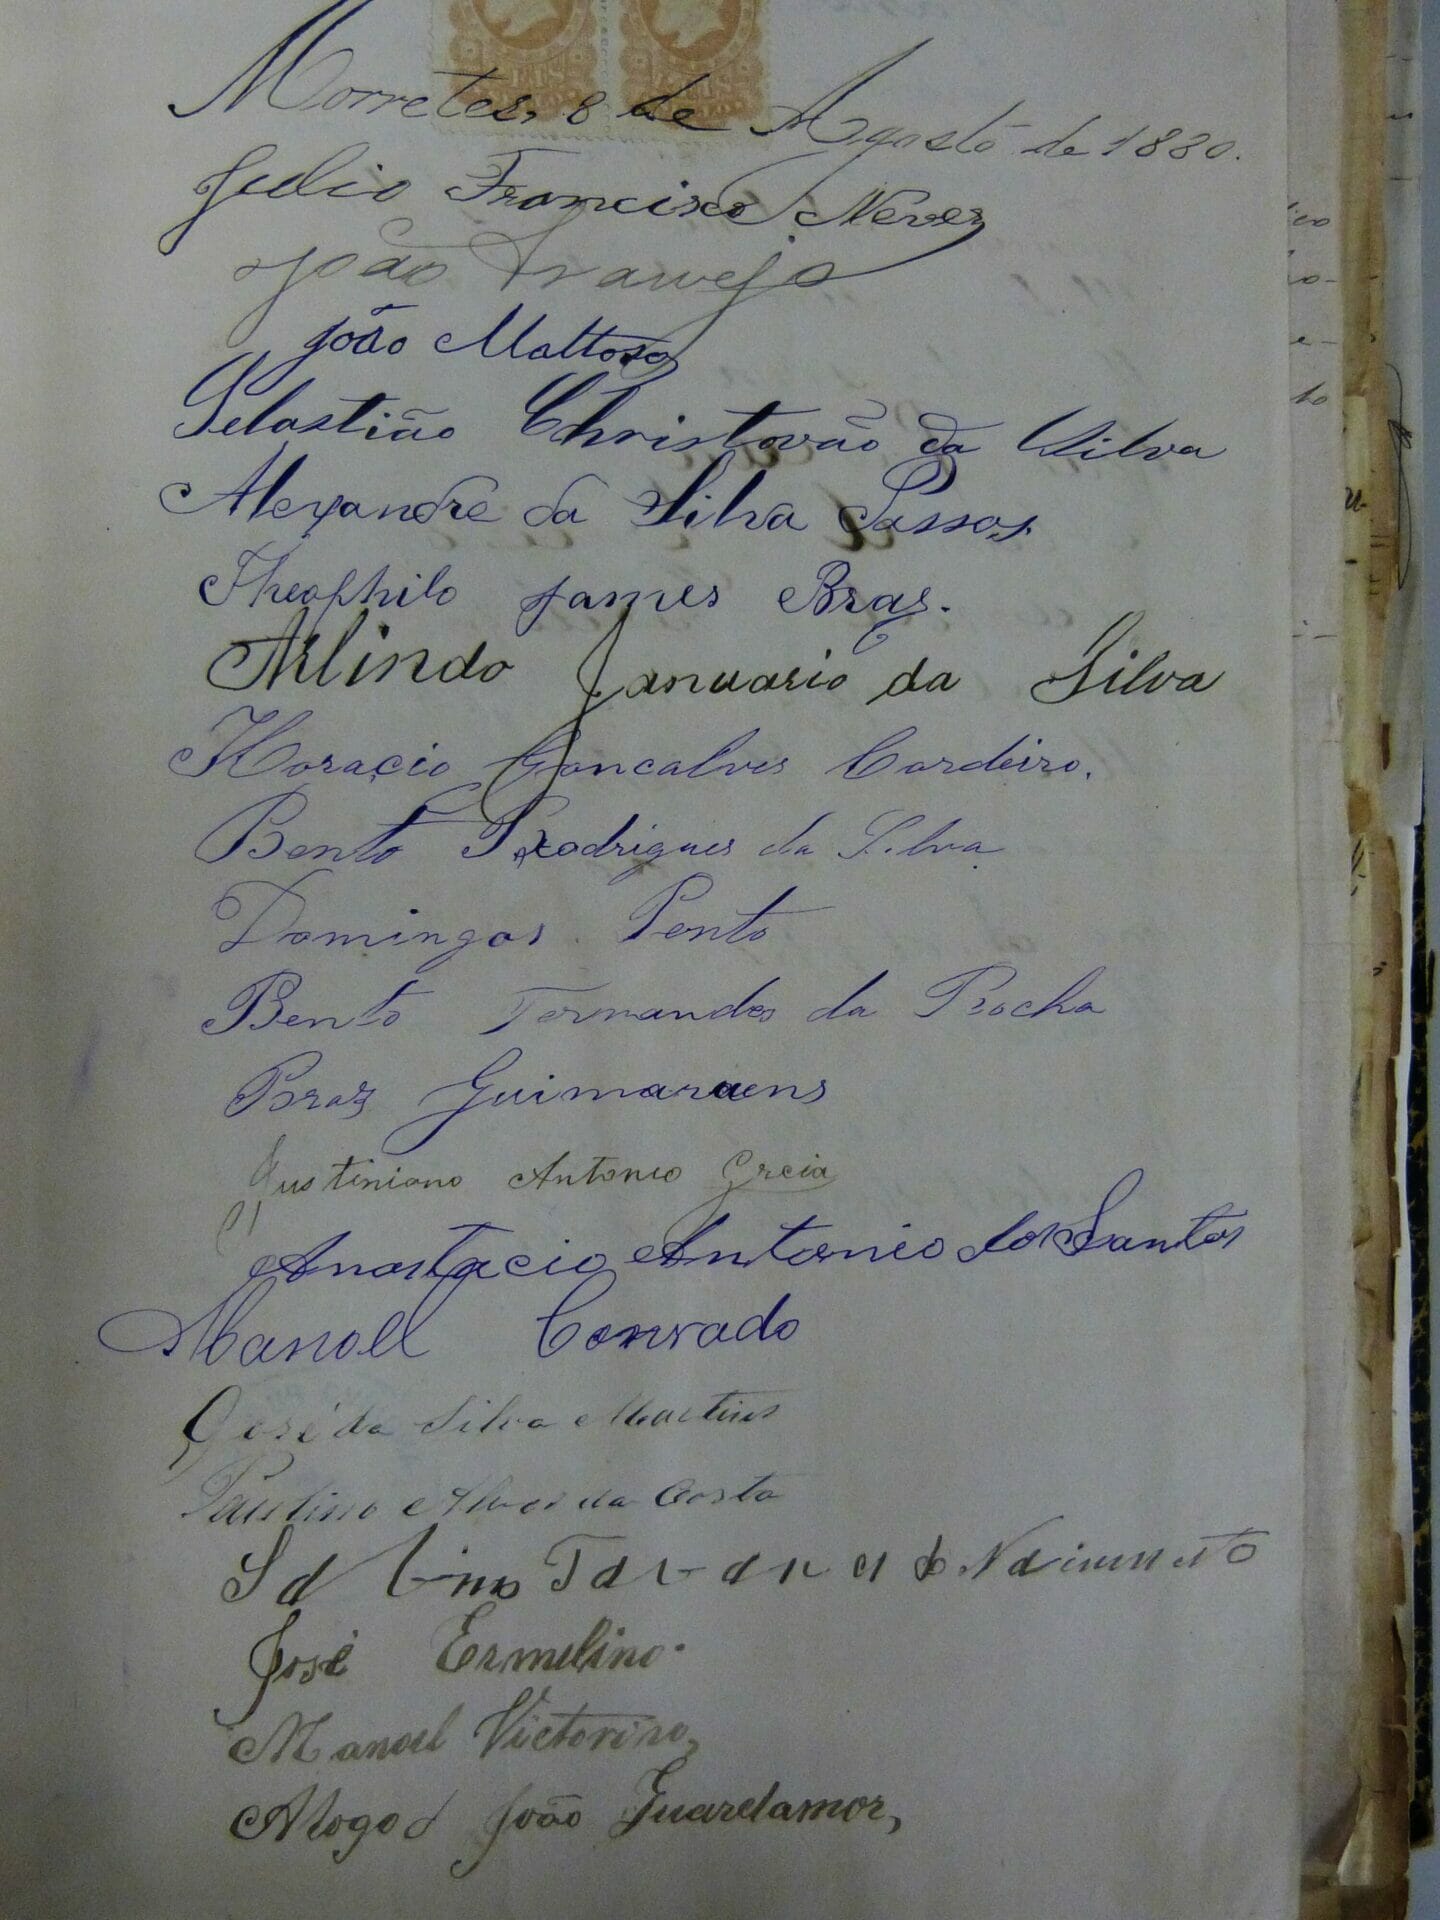 Morretes, 8 de Agosto de 1880.
Julio Francisco Neves
João
João Mattoso
Sebastião Christovão da Silva
Alexandre da Silva Passos.
Theophilo James Bras.
Arlindo Januario da Silva
Horacio Goncalves Cordeiro.
Bento Rodrigues da Silva
Domingos Pento
Bento Fernandes da Rocha
Braz Guimaraens
Justiniano Antonio
Anastacio Antonio dos Santos
Manoel Conrado
José da Silva Martins
Paulino Alves da Costa
do
José Ermelino.
Manoel Victorino,
João Guardamor,